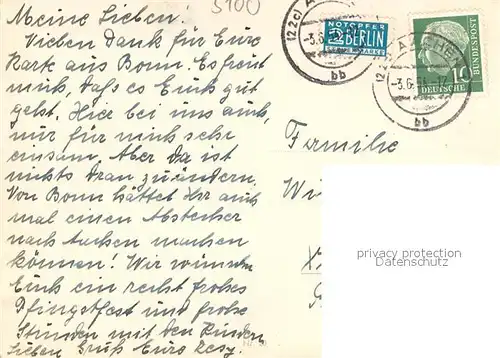 5100
Meine Lieben!
Vielen Dank für Eure
Karte aus Bonn. Es freut
mich, daß es Euch gut
geht. Hier bei uns auch,
nur für mich sehr
einsam. Aber da ist
nichts dran zu ändern.
Von Bonn hättet Ihr auch
mal einen Abstecher
nach Aachen machen
können! Wir wünschen
Euch ein recht frohes
Pfingstfest und frohe
Stunden mit den Kindern
Lieben Gruß Eure
NOTOPFER
2 BERLIN
STEUERMARKE
(22c)
-3.6.
bb
AACHEN
-3.6.
bb
10
DEUTSCHE
BUNDESPOST
Familie
Wi
privacy protection
Datenschutz